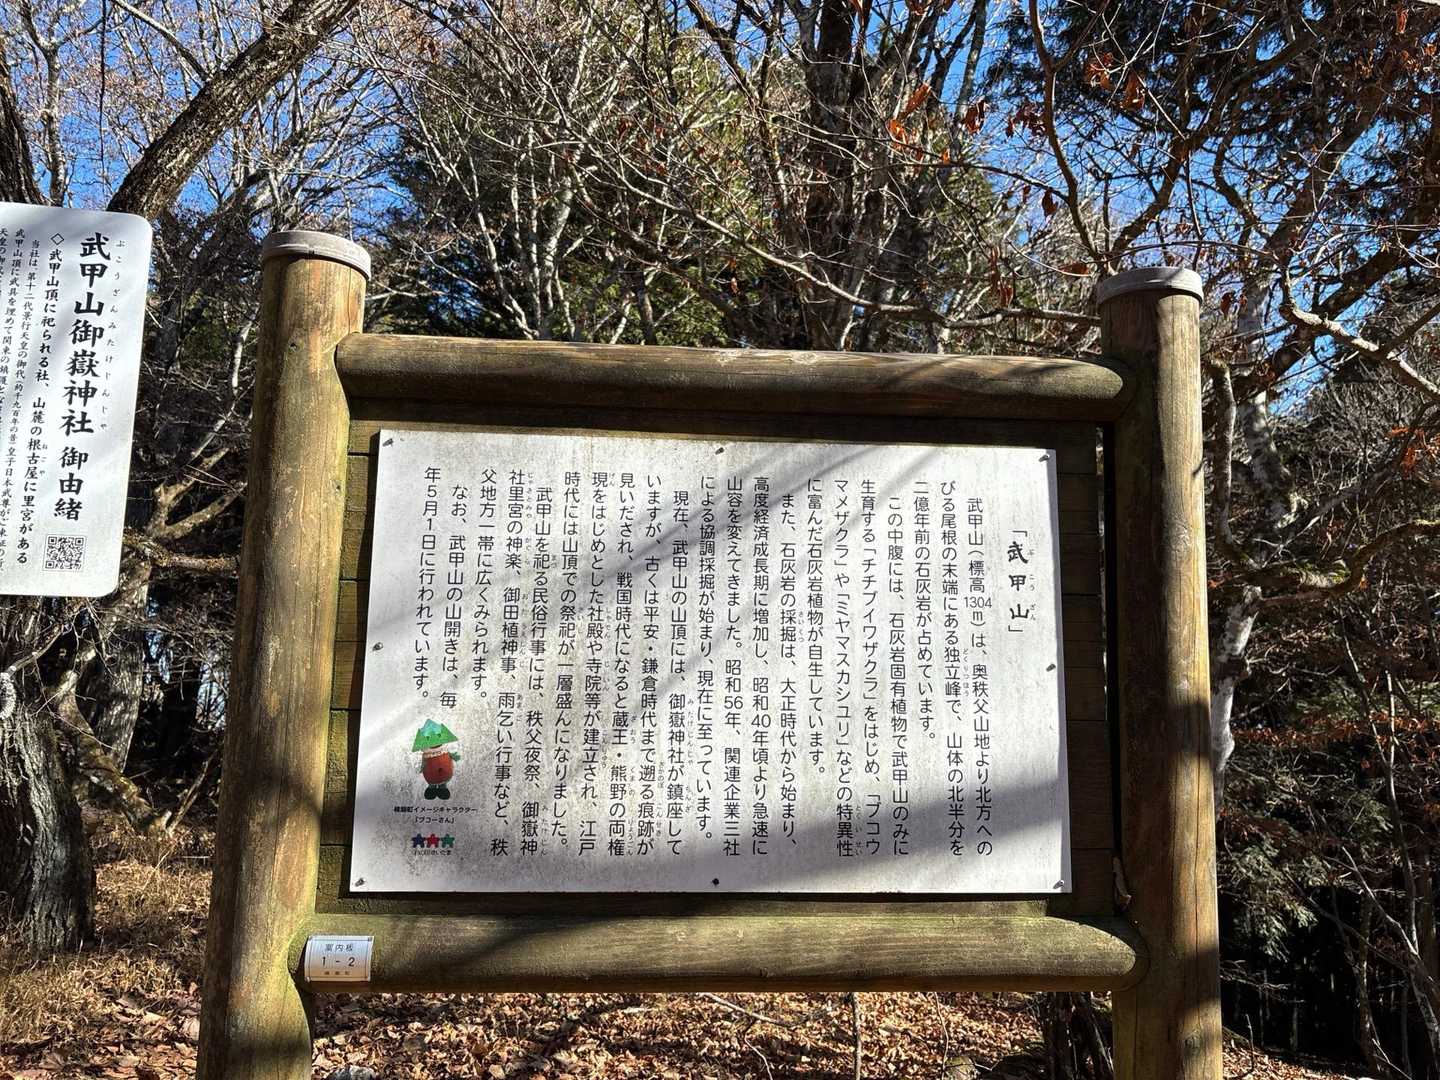 「武甲山」
武甲山（標高1304m）は、奥秩父山地より北方への
びる尾根の末端にある独立峰で、山体の北半分を
二億年前の石灰岩が占めています。
この中腹には、石灰岩固有植物で武甲山のみに
生育する「チチブイワザクラ」をはじめ、「ブコウ
マメザクラ」や「ミヤマスカシユリ」などの特異性
に富んだ石灰岩植物が自生しています。
また、石灰岩の採掘は、大正時代から始まり、
高度経済成長期に増加し、昭和40年頃より急速に
山容を変えてきました。昭和56年、関連企業三社
による協調採掘が始まり、現在に至っています。
現在、武甲山の山頂には、御嶽神社が鎮座して
いますが、古くは平安・鎌倉時代まで遡る痕跡が
見いだされ、戦国時代になると蔵王・熊野の両権
現をはじめとした社殿や寺院等が建立され、江戸
時代には山頂での祭祀が一層盛んになりました。
武甲山を祀る民俗行事には、秩父夜祭、御嶽神
社里宮の神楽、御田植神事、雨乞い行事など、秩
父地方一帯に広くみられます。
なお、武甲山の山開きは、毎
年5月1日に行われています。
横瀬町イメージキャラクター
「ブコーさん」
案内板
1-2
横瀬町
ぶこうざんみたけじんじゃ
武甲山御嶽神社 御由緒
◇武甲山頂に祀られる社、山麓の根古屋に里宮がある
当社は、第十二代景行天皇の御代（約千九百年の昔）皇子日本武尊がご来征の
武甲山頂に武具を埋めて関東の鎮護と